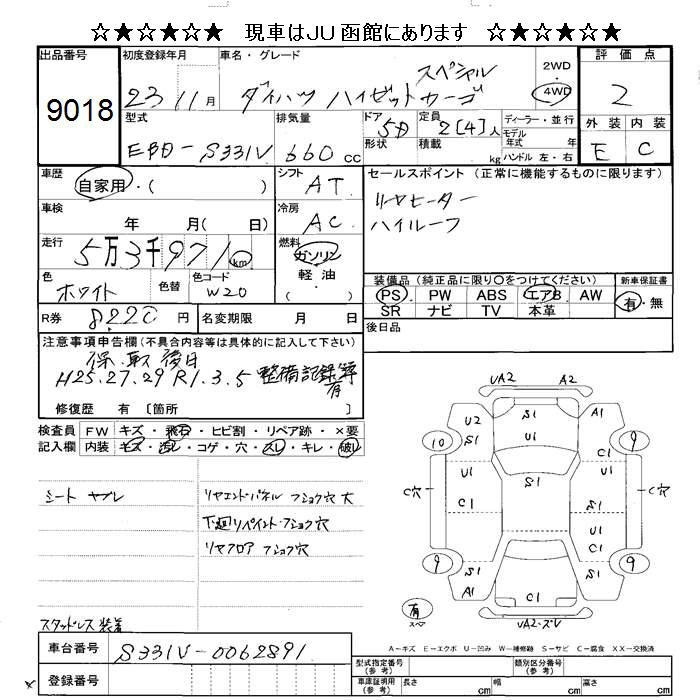 ☆★☆★☆ 現車はJU函館にあります ☆★☆★☆
出品番号 初度登録年月 車名・グレード 評価点
9018 23 11月 ダイハツ ハイゼットカーゴ スペシャル 2WD 4WD 2
型式 排気量 ドア 定員 ディーラー・並行 外装 内装
EBD-S331V 660cc 5D 2[4]人 モデル年式 年 E C
形状 積載 kg ハンドル 左・右
車歴 自家用・( ) シフト AT セールスポイント (正常に機能するものに限ります)
リヤヒーター
ハイルーフ
車検 年 月( 日) 冷房 AC
走行 5万3千971km 燃料 ガソリン 軽油 ( )
色 ホワイト 色替 色コード W20
装備品 (純正品に限り○をつけてください) 新車保証書
PS PW ABS エアB AW 有・無
SR ナビ TV 本革
R券 8220円 名変期限 月 日 後日品
注意事項申告欄 (不具合内容等は具体的に記入して下さい)
保.取 後日
H25.27.29 R1.3.5 整備記録簿有
修復歴 有 〔箇所
検査員記入欄 FW キズ・飛石・ヒビ割・リペア跡・×要
内装 キズ・汚レ・コゲ・穴・スレ・キレ・破レ
シート ヤブレ
リヤエンドパネル フショク穴 大
下廻リペイント・フショク穴
リヤフロア フショク穴
スタッドレス 装着
UA2 A2
U2 S1 S1 U1 A1 S1
10 9
C穴 U1 C1 S1 C1 U1 C1 C穴
9 9
S1 A1 C1 S1
有 スペア UA2・ズレ
A－キズ E－エクボ U－凹み W－補修跡 S－サビ C－腐食 XX－交換済
車台番号 S331V-0062891
登録番号
型式指定番号(参考) 類別区分番号(参考)
車庫証明用(参考) 長さ cm 幅 cm 高さ cm